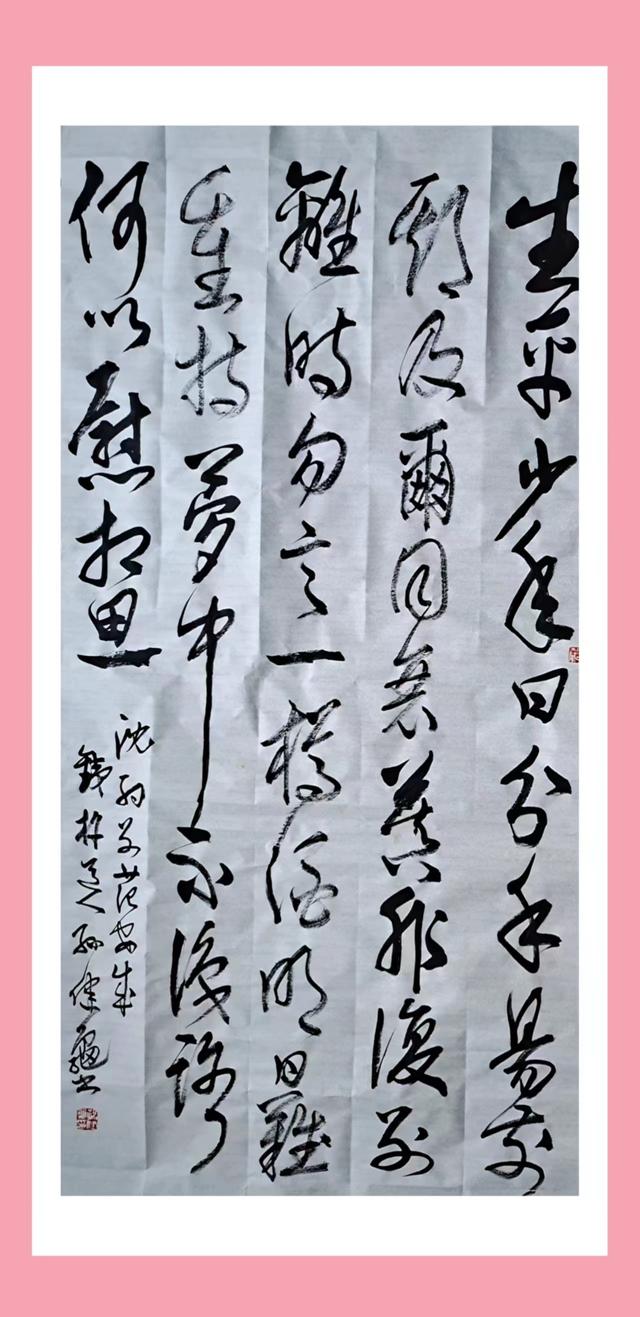 生平少年日分手易前
期及爾同衰暮非復別
離時勿言一樽酒明日難
重持夢中不識路
何以慰相思
沈約別范安成
孫健